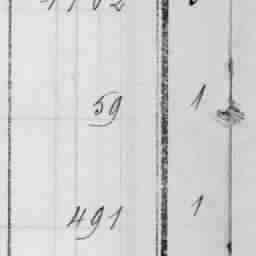 59 1
491 1